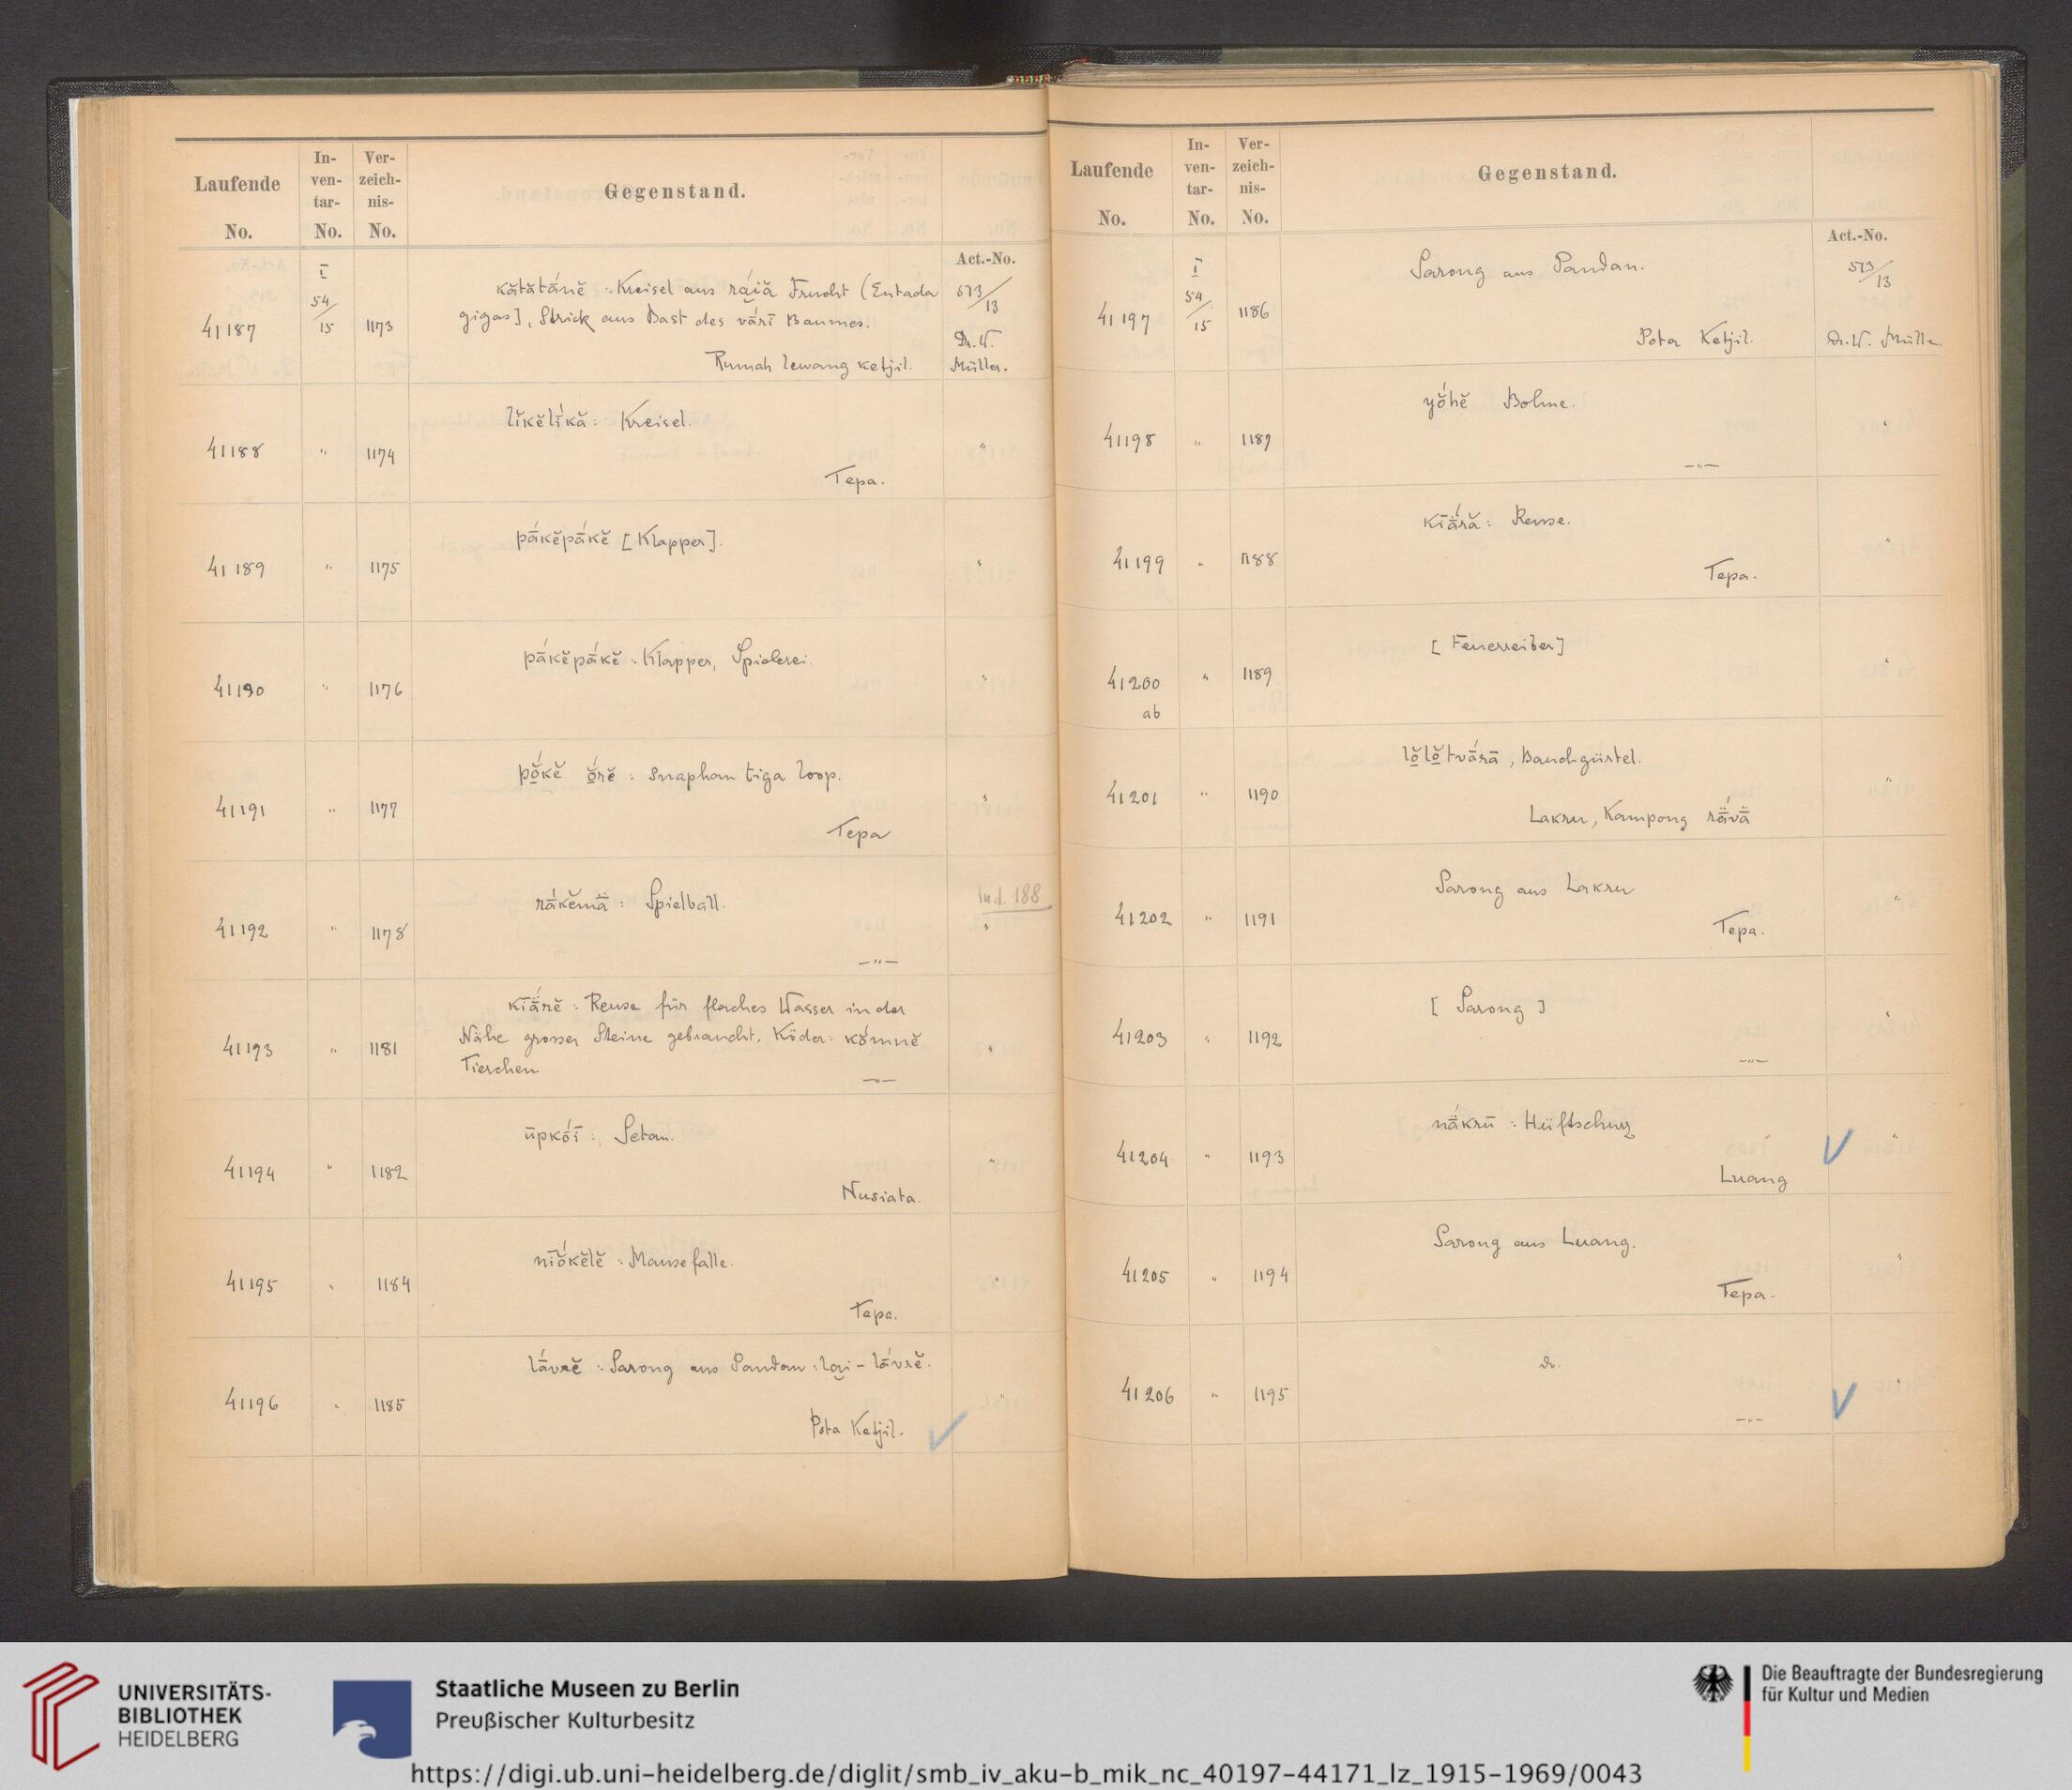 Laufende No. In-ven-tar- No. Ver-zeich-nis- No. Gegenstand.
Act.-No.
41187 I 54/15 1173 kătătā́nĕ : Kreisel aus ráiă Frucht (Entada 573/13
gigas], Strick aus Bast des vā́rī Baumes. Dr. W.
Rumah lewang ketjil. Müller.
41188 " 1174 lĭkĕlī́kă : Kreisel. "
Tepa.
41189 " 1175 pā́kĕpā́kĕ [Klapper]. "
41190 " 1176 pā́kĕpā́kĕ : Klapper, Spielerei. "
41191 " 1177 pŏ́kĕ ŏ́rĕ : Snaphan tiga loop. "
Tepa
Ind. 188
41192 " 1178 rā́kĕmā̈ : Spielball. "
—"—
41193 " 1181 kīā̈́rĕ : Reuse für flaches Wasser in der
Nähe grosser Steine gebraucht. Köder: kŏ́mnĕ "
Tierchen —"—
41194 " 1182 ūpkṓī : Setan. "
Nusiata.
41195 " 1184 nīŏ́kĕlĕ : Mausefalle. "
Tepa.
41196 " 1185 lā́vrĕ : Sarong aus Pandan : lai - lā́vrĕ. "
Pota Ketjil. ✓
Laufende No. In-ven-tar- No. Ver-zeich-nis- No. Gegenstand.
Act.-No.
41197 I 54/15 1186 Sarong aus Pandan. 573/13
Pota Ketjil. Dr. W. Müller.
41198 " 1187 yŏ́hĕ Bohne. "
—"—
41199 " 1188 kīā̈́ră : Reuse. "
Tepa.
41200 " 1189 [Feuerreiber] "
ab
41201 " 1190 lŏlŏtvā́rā, Bauchgürtel. "
Lakru, Kampong rā̈́vā̈
41202 " 1191 Sarong aus Lakru "
Tepa.
41203 " 1192 [Sarong] "
—"—
41204 " 1193 nā̈́krū : Hüftschurz ✓ "
Luang
41205 " 1194 Sarong aus Luang. "
Tepa.
41206 " 1195 do. ✓ "
—"—
UNIVERSITÄTS-
BIBLIOTHEK
HEIDELBERG
Staatliche Museen zu Berlin
Preußischer Kulturbesitz
Die Beauftragte der Bundesregierung
für Kultur und Medien
https://digi.ub.uni-heidelberg.de/diglit/smb_iv_aku-b_mik_nc_40197-44171_lz_1915-1969/0043